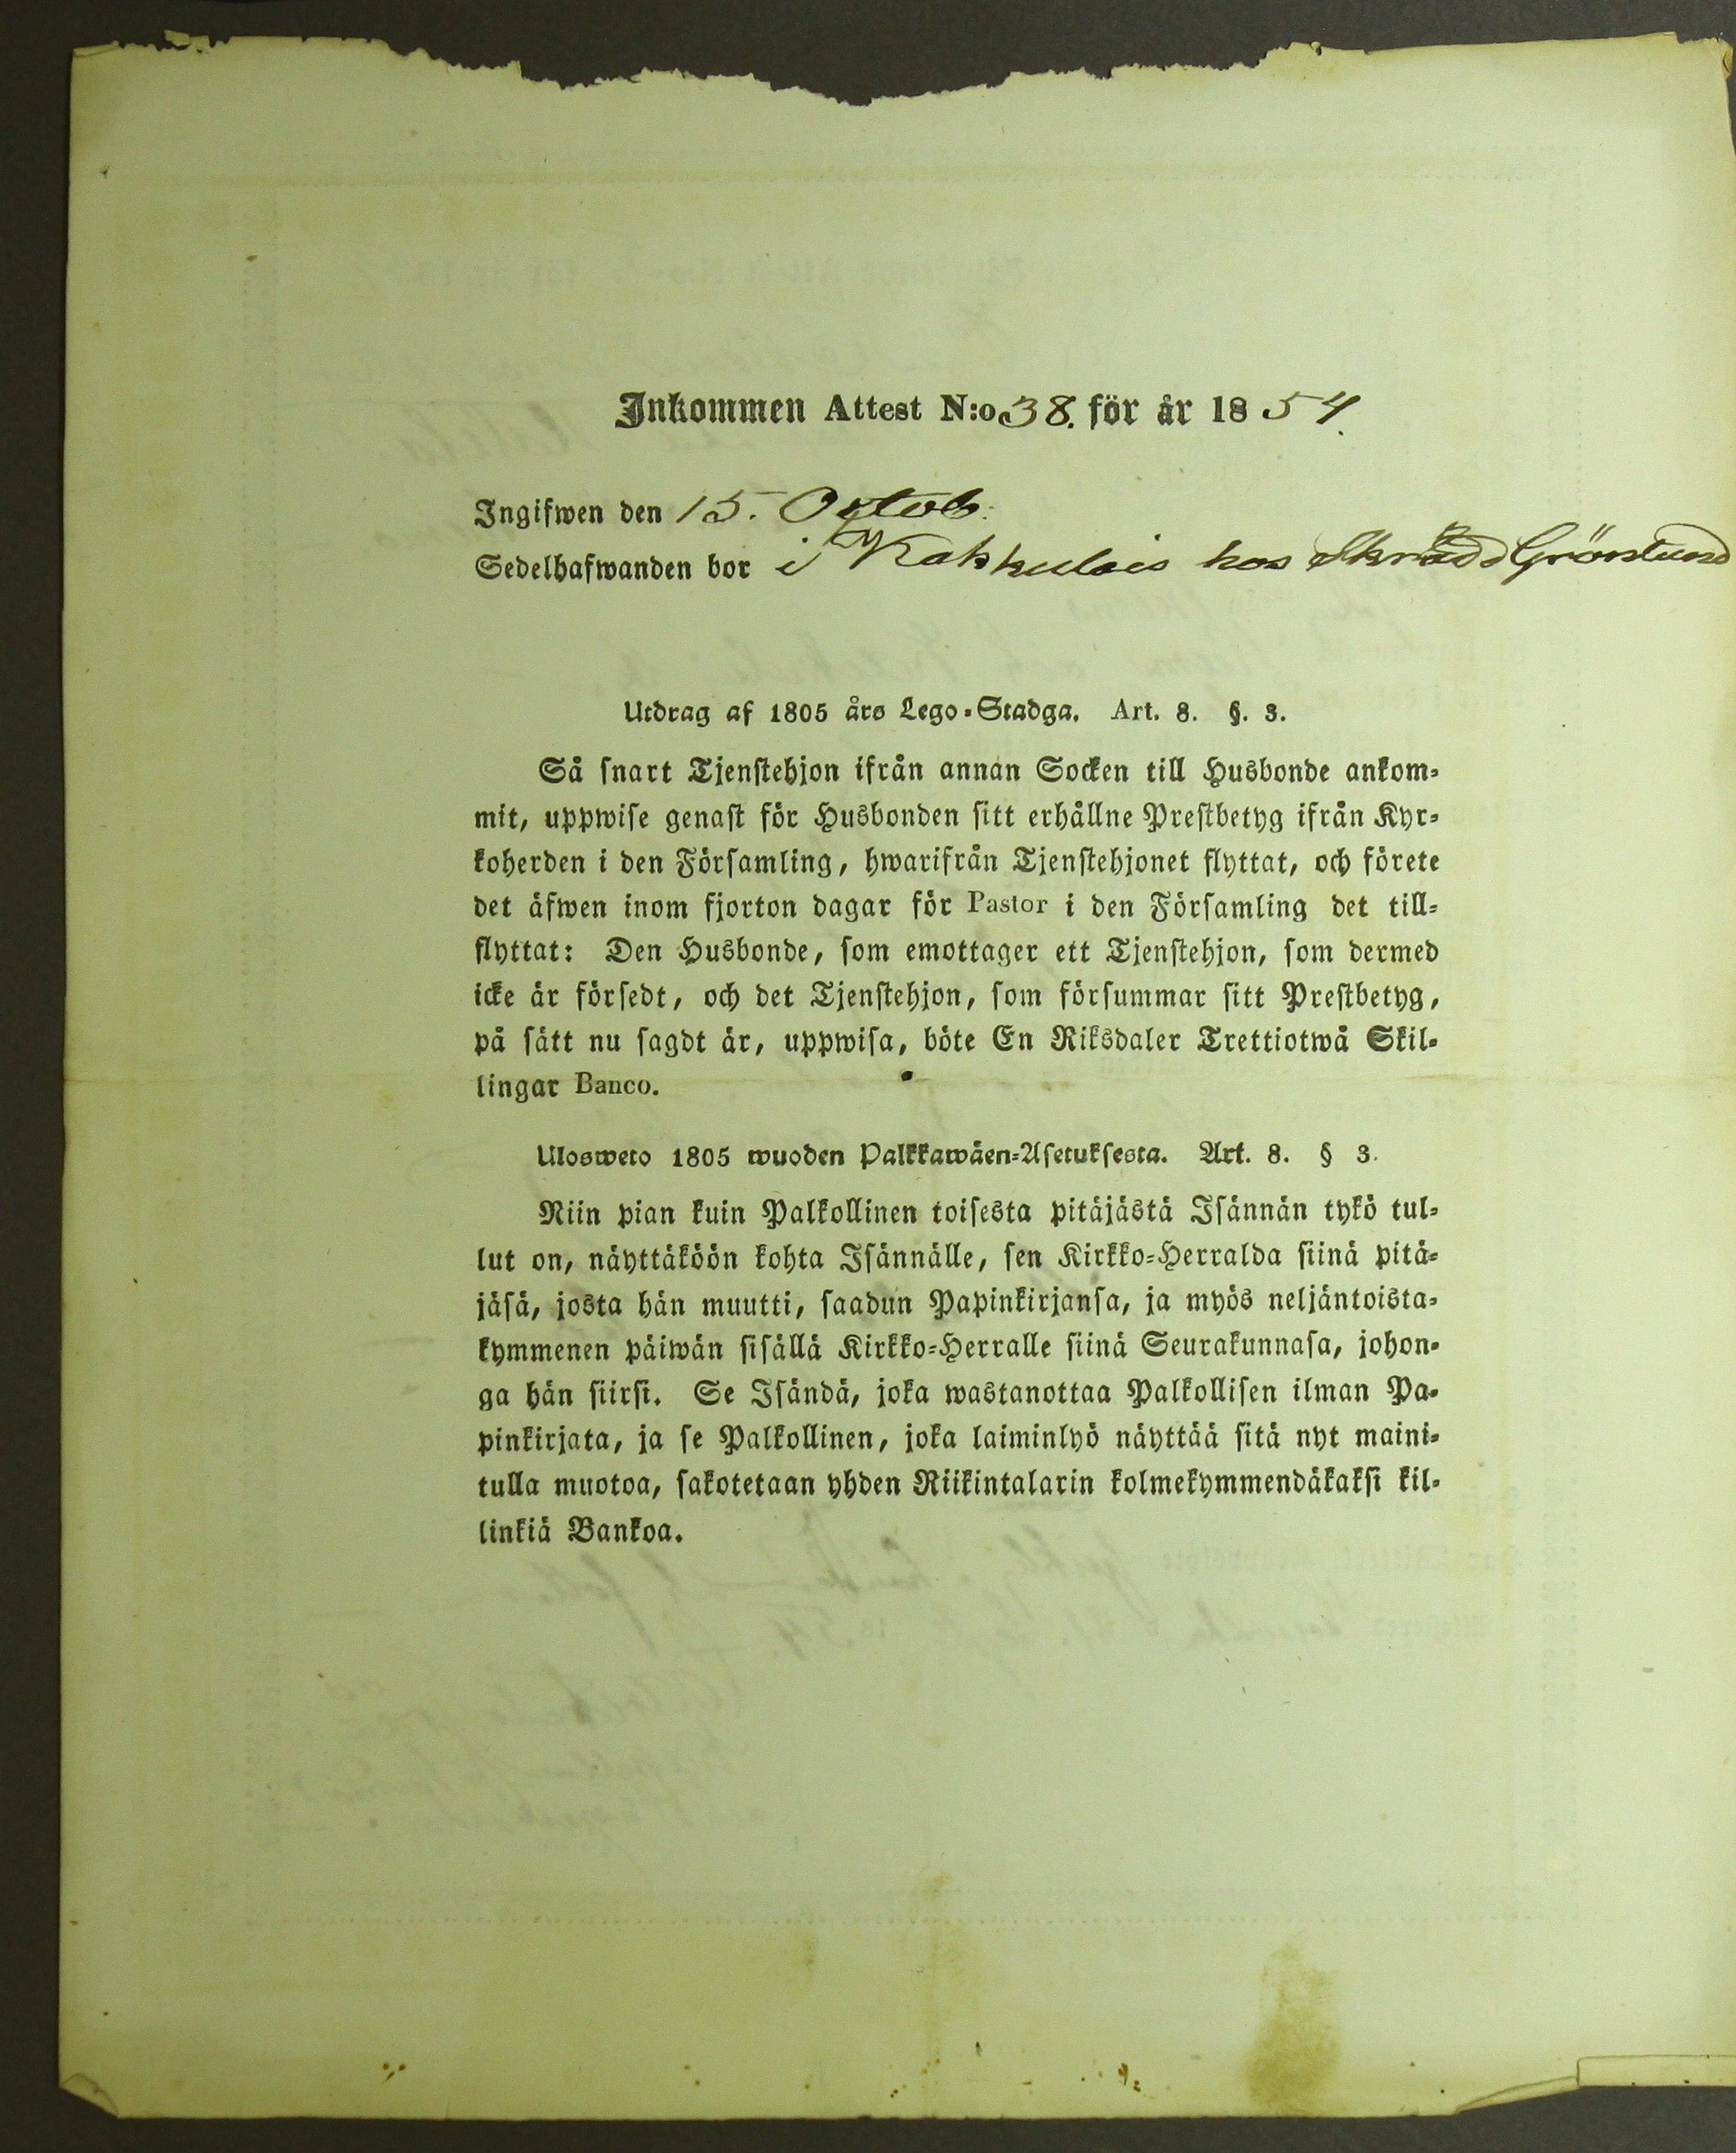 Inkommen Attest N:o 38. för år 1854.
Ingifwen den 15. Octob.
Sedelhafwanden bor i Kakkulais hos Skrädd Grönlund
Utdrag af 1805 års Lego-Stadga. Art. 8. §. 3.
Så snart Tjenstehjon ifrån annan Socken till Husbonde ankom-
mit, uppwise genast för Husbonden sitt erhållne Prestbetyg ifrån Kyr-
koherden i den Församling, hwarifrån Tjenstehjonet flyttat, och förete
det äfwen inom fjorton dagar för Pastor i den Församling det till-
flyttat: Den Husbonde, som emottager ett Tjenstehjon, som dermed
icke är försedt, och det Tjenstehjon, som försummar sitt Prestbetyg,
på sätt nu sagdt är, uppwisa, böte En Riksdaler Trettiotwå Skil-
lingar Banco.
Ulosweto 1805 wuoden Palkkawäen-Asetuksesta. Art. 8. § 3.
Niin pian kuin Palkollinen toisesta pitäjästä Isännän tykö tul-
lut on, näyttäköön kohta Isännälle, sen Kirkko-Herralda siinä pitä-
jäsä, josta hän muutti, saadun Papinkirjansa, ja myös neljäntoista-
kymmenen päiwän sisällä Kirkko-Herralle siinä Seurakunnasa, johon-
ga hän siirsi. Se Isändä, joka wastanottaa Palkollisen ilman Pa-
pinkirjata, ja se Palkollinen, joka laiminlyö näyttää sitä nyt maini-
tulla muotoa, sakotetaan yhden Riikintalarin kolmekymmendäkaksi kil-
linkiä Bankoa.